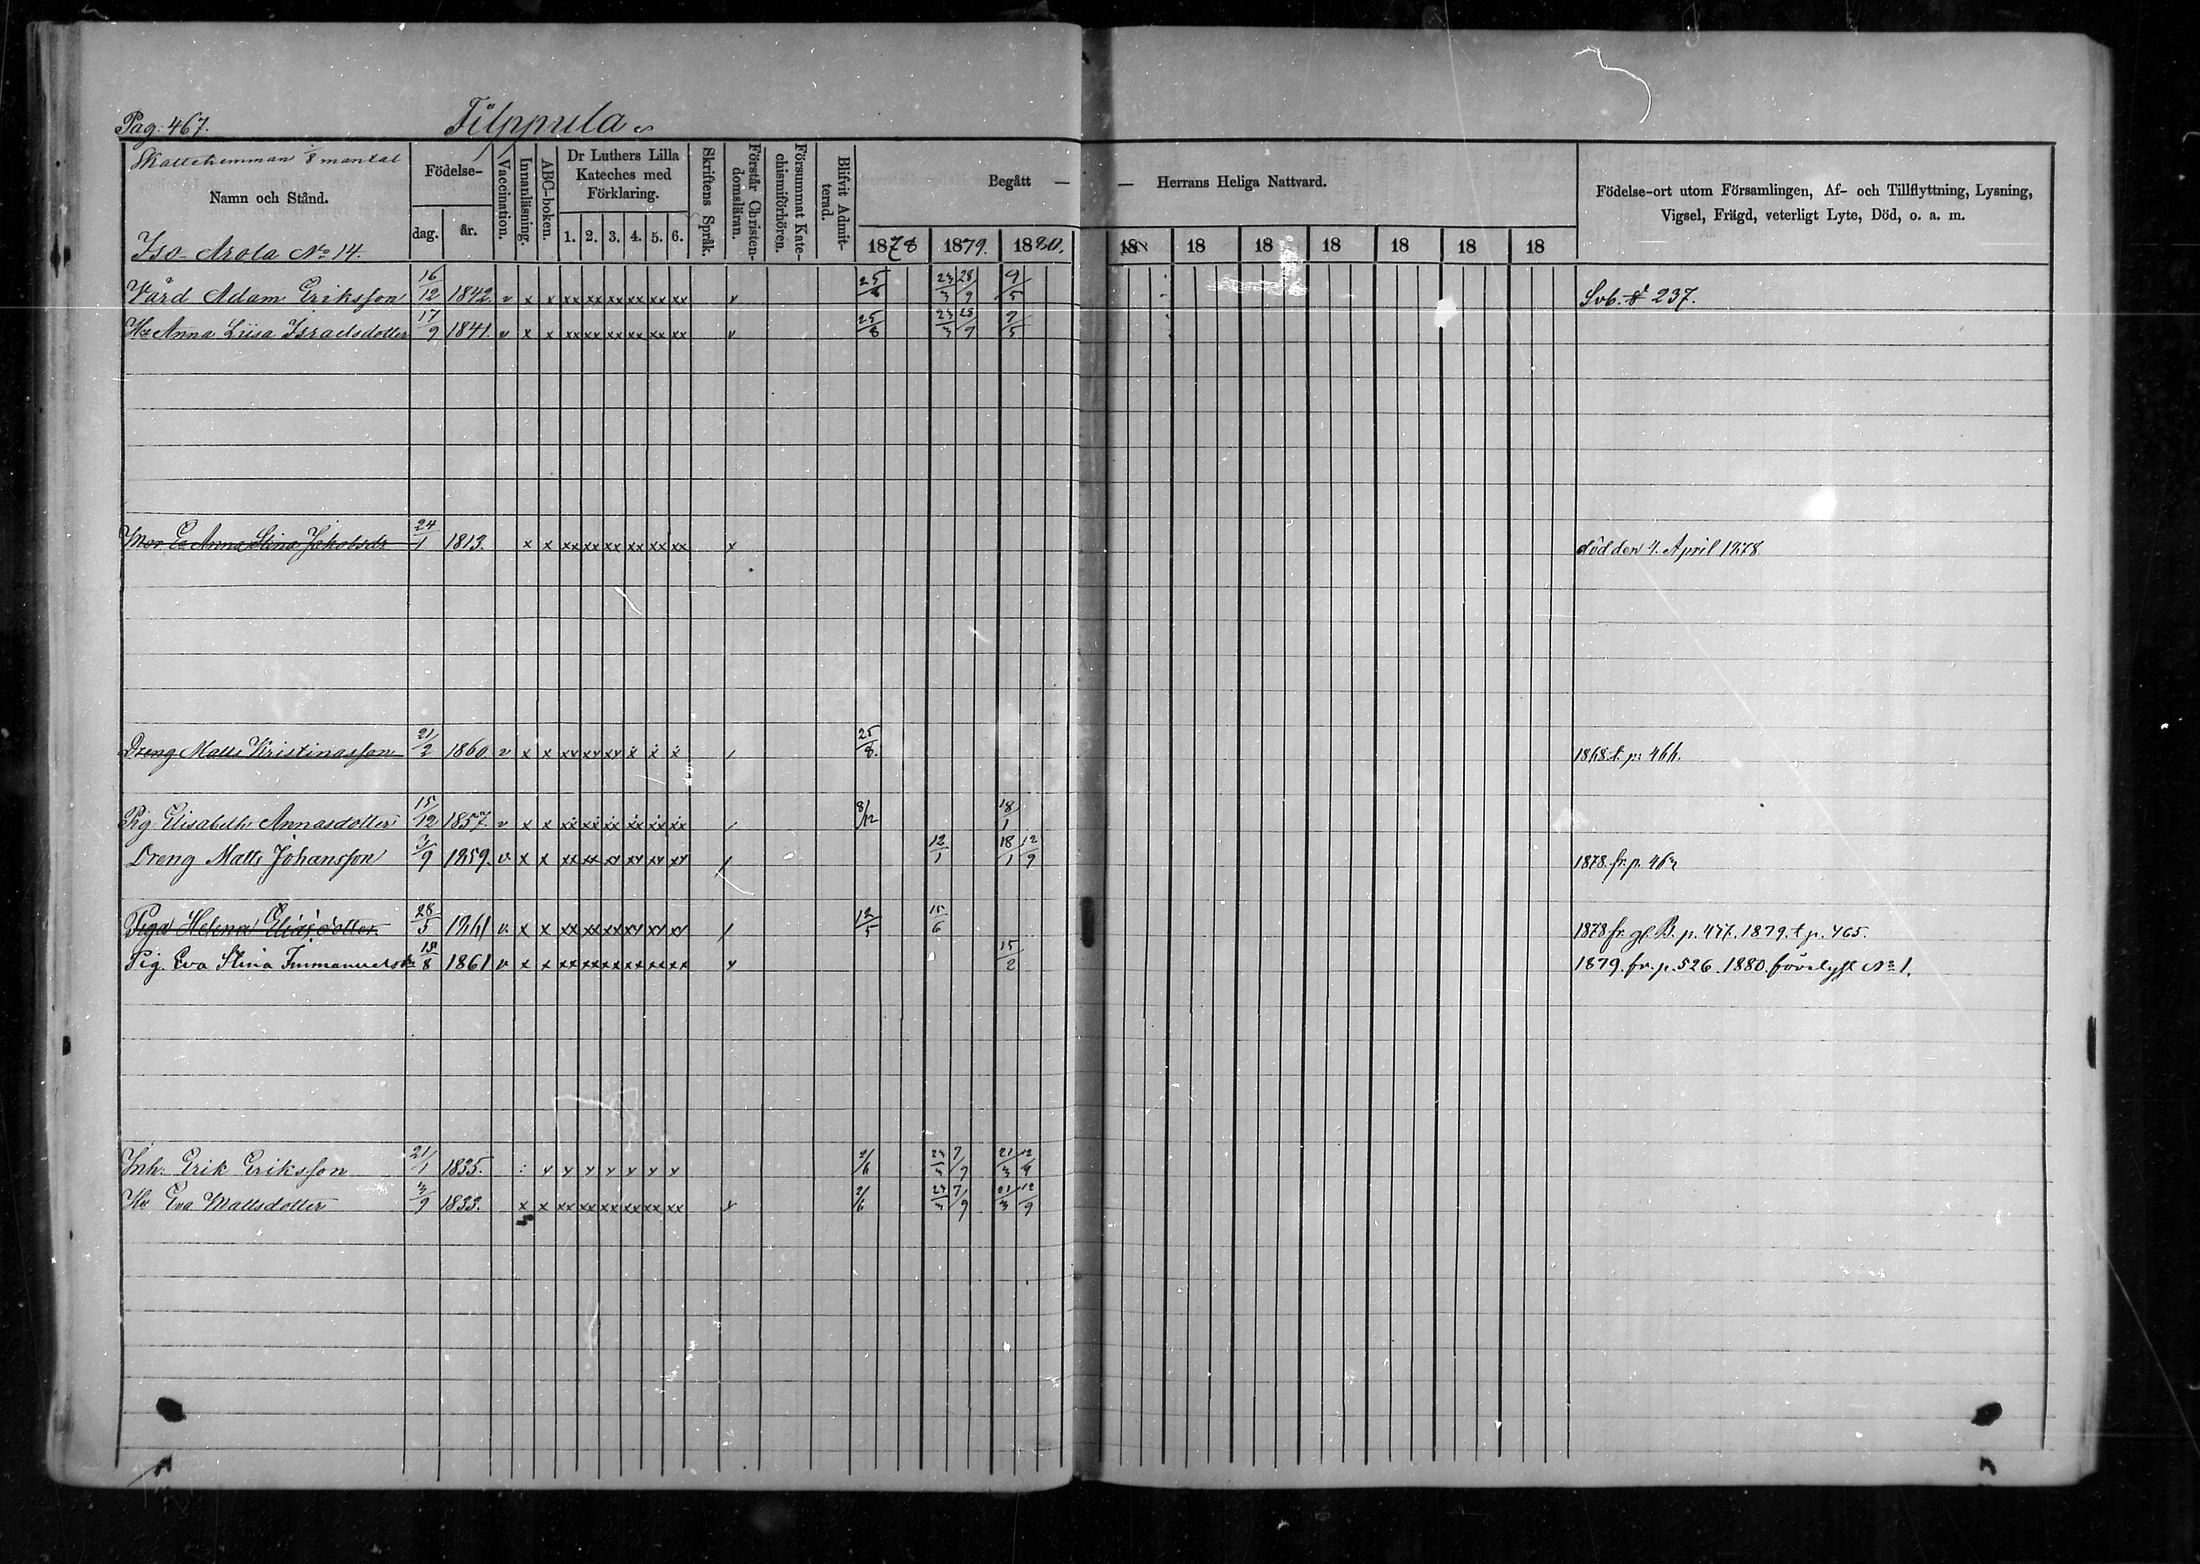 Pag: 467. Filppula
Skattehemman 1/8 mantal
Namn och Stånd.
Iso-Arola No 14.
Födelse-
dag. år.
Vaccination.
Innanläsning.
ABC-boken.
Dr Luthers Lilla
Kateches med
Förklaring.
1. 2. 3. 4. 5. 6.
Skriftens Språk.
Förstår Christen-
domsläran.
Försummat Kate-
chismiförhören.
Blifvit Admit-
terad.
Begått — — Herrans Heliga Nattvard.
1878 1879. 1880. 18 18 18 18 18 18 18
Födelse-ort utom Församlingen, Af- och Tillflyttning, Lysning,
Vigsel, Frägd, veterligt Lyte, Död, o. a. m.
Vård Adam Eriksson 16/12 1842. v x x xx xx xx xx xx xx v 25/8 23/3 28/9 9/5 237.
Hu Anna Liisa Israelsdotter 17/9 1841. v x x xx xx xx xx xx xx v 25/8 23/3 28/9 9/5
Mor Anna Stina Jakobsdr 24/1 1813. x x xx xx xx xx xx xx x död den 4. April 1878
Dreng Matts Kristinasson 21/2 1860. v x x xx xx xx x x x / 25/8. t. p. 466.
Pig. Elisabeth Annasdotter 15/12 1857. v x x xx xx xx xx xx xx / 8/12 18/1
Dreng Matts Johansson 3/9 1859. v. x x xx xx xx xx xx xx / 12/1 18/1 12/9 1878. fr. p.
Piga Helena Eliasdotter 28/5 1861 v. x x xx xx xx xx xx xx / 12/5 15/6 1878 fr. gl. B. p. 477. 1879. t. p. 465.
Pig. Eva Stina Immanuelsdr 18/8 1861 v. x x xx xx xx xx xx xx v 15/2 1879. fr. p. 526. 1880. förelyst No 1.
Inh. Erik Eriksson 21/1 1835. v v v v v v v 2/6 23/3 7/9 21/3 12/9
Hu Eva Mattsdotter 3/9 1833. x x xx xx xx xx xx xx v 2/6 23/3 7/9 21/3 12/9